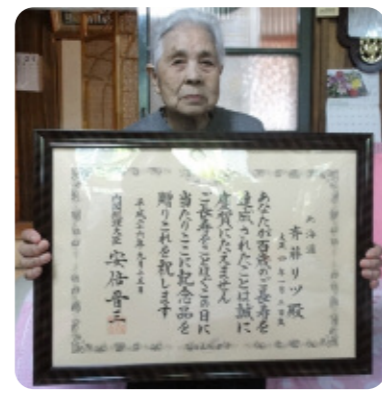 北海道
斉藤リツ殿
あなたが百歳のご長寿を
達成されたことは誠に
慶賀にたえません
ご長寿をことほぐこの日に
当たりここに記念品を
贈りこれを祝します
内閣総理大臣 安倍晋三